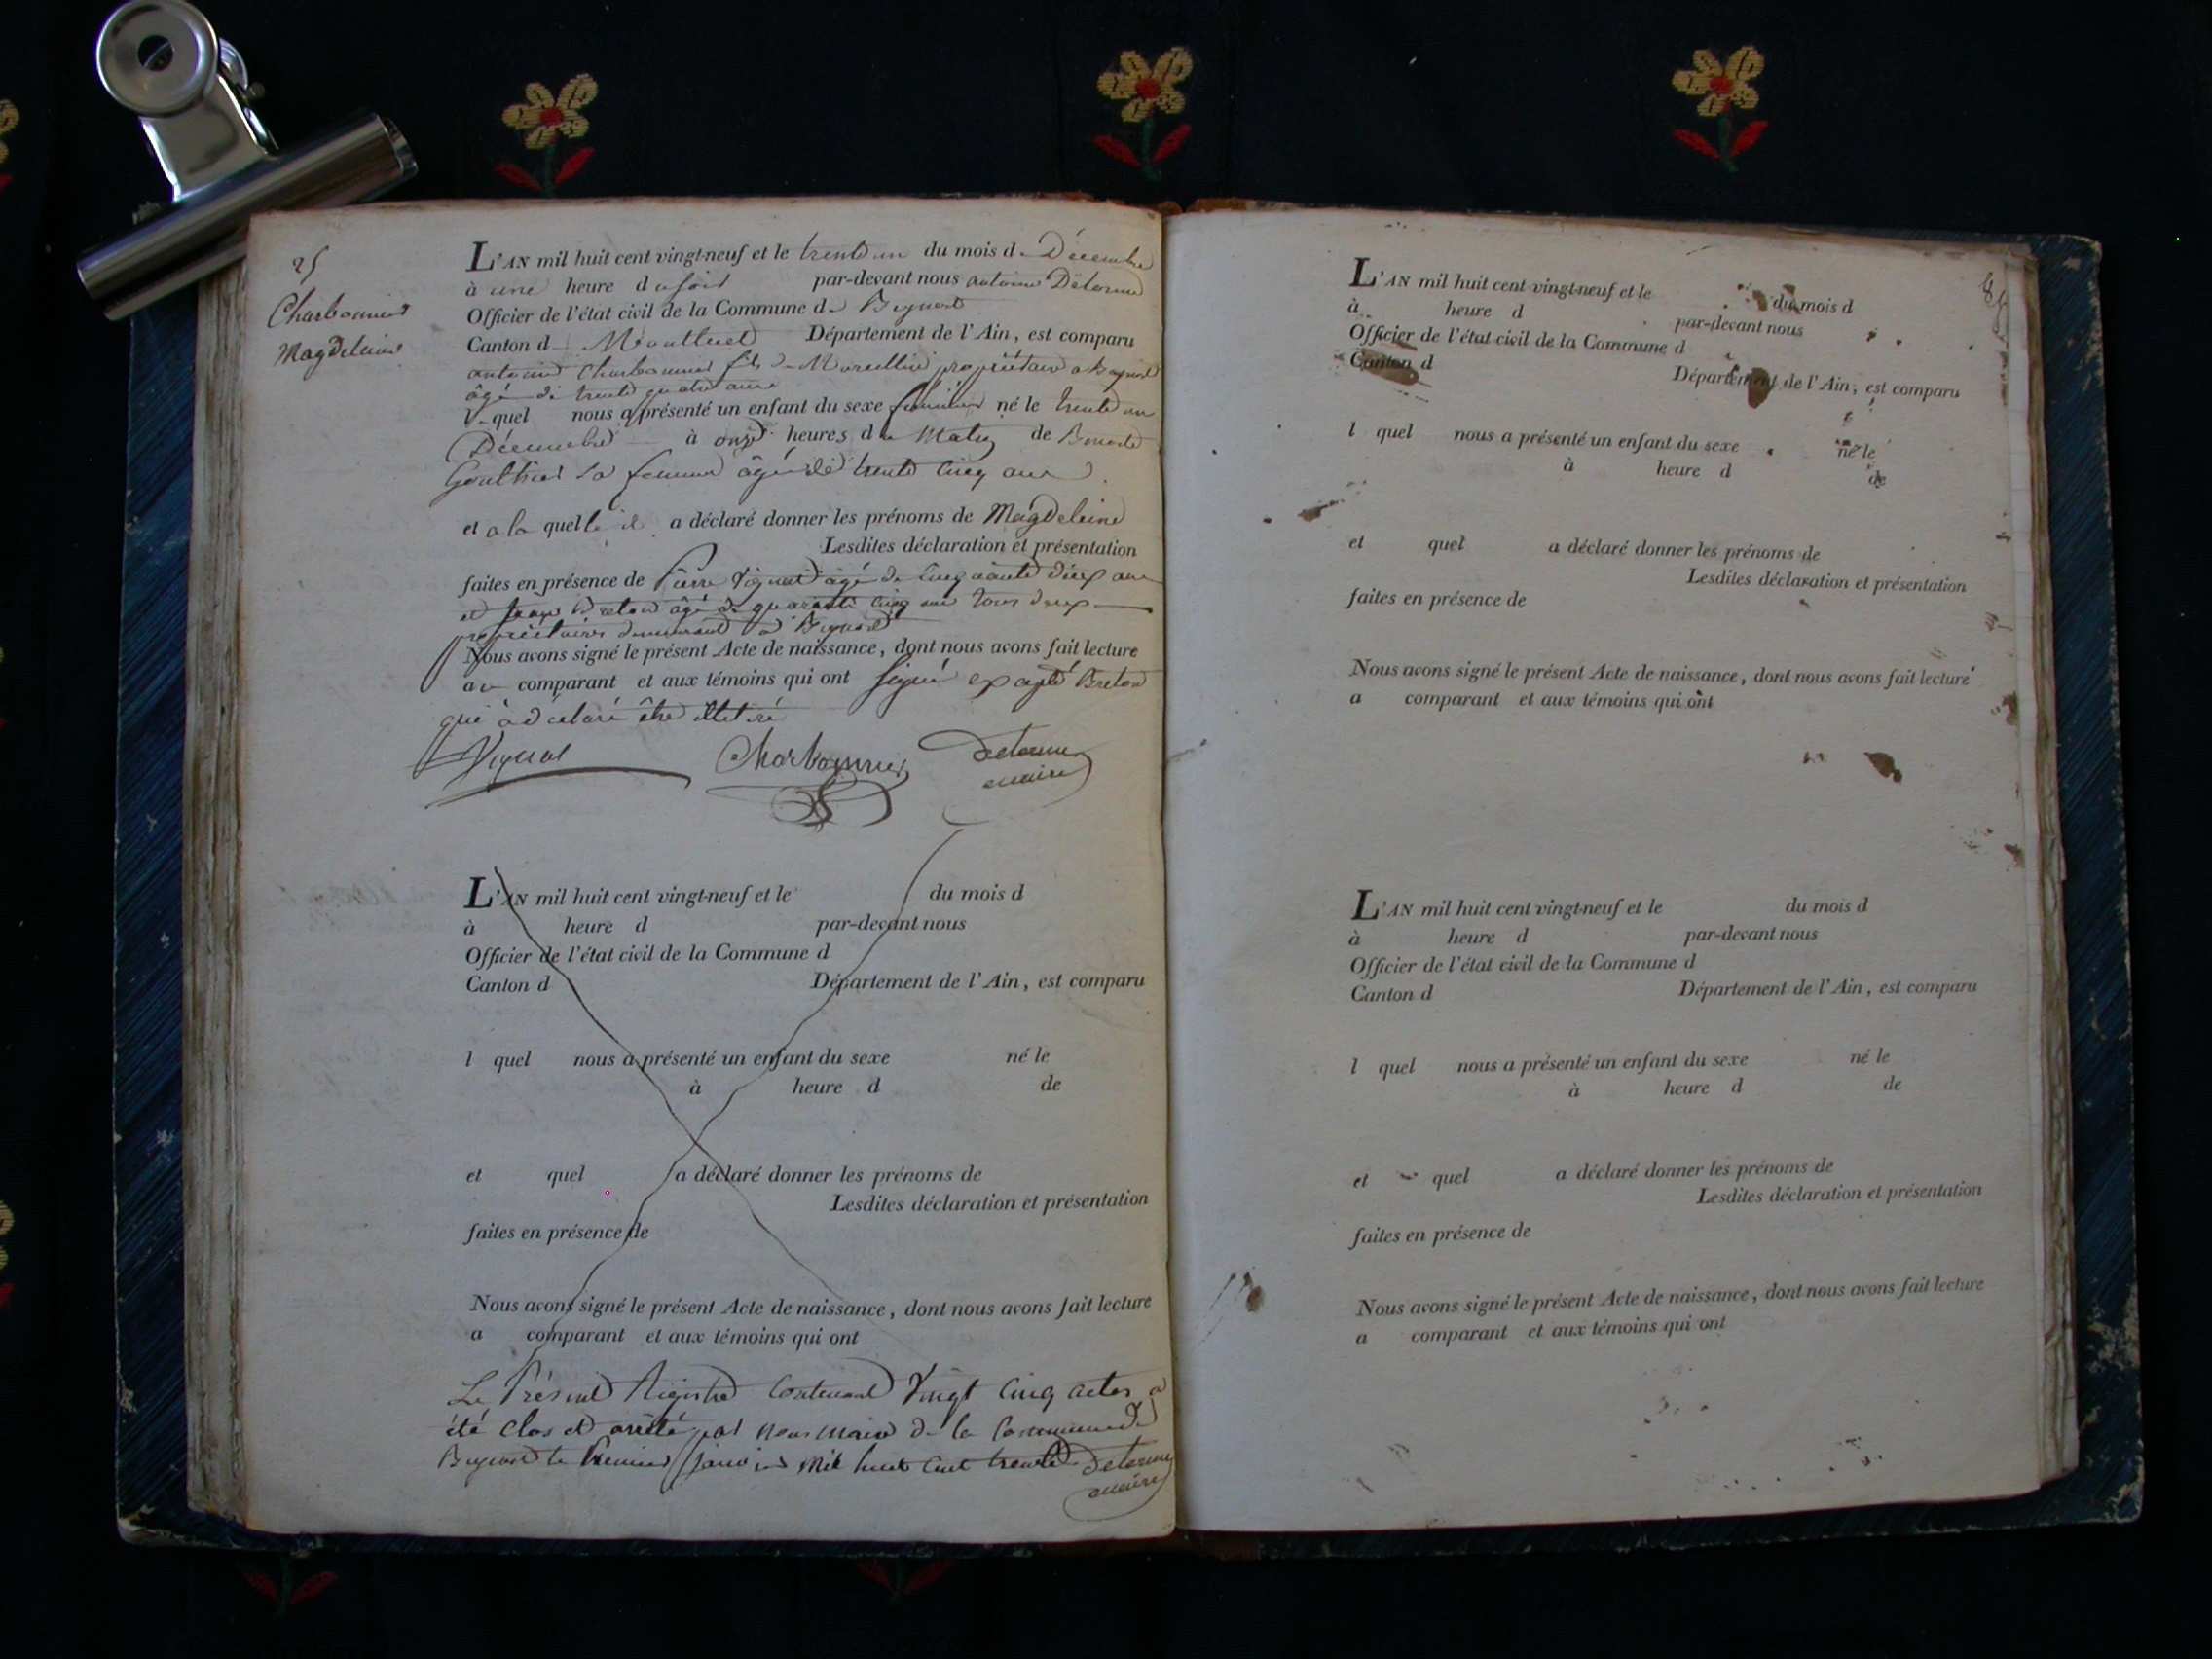 25
Charbonnier
Magdeleine
L'AN mil huit cent vingt-neuf et le trent un du mois de Décembre
à une heure du soir par-devant nous antoine Détorme
Officier de l'état civil de la Commune de
Canton de Montluel Département de l'Ain, est comparu
antoine Charbonnier fils de Marcellin propriétaire a
âgé de trente quatre ans
le quel nous a présenté un enfant du sexe féminin né le trente un
Décembre à onze heures du Matin de Benoite
Gonthier sa femme âgée de trente Cinq ans
et a la quelle il a déclaré donner les prénoms de Magdeleine
Lesdites déclaration et présentation
faites en présence de Pierre Vignat âgé de Cinquante deux ans
et Breton âgé de quarante Cinq ans tous deux
propriétaires demeurant à
Nous avons signé le présent Acte de naissance, dont nous avons fait lecture
au comparant et aux témoins qui ont signé excepté Breton
qui à déclaré être illitéré
Vignat Charbonnier Detorme
maire
L'AN mil huit cent vingt-neuf et le du mois d
à heure d par-devant nous
Officier de l'état civil de la Commune d
Canton d Département de l'Ain, est comparu
l quel nous a présenté un enfant du sexe né le
à heure d de
et quel a déclaré donner les prénoms de
Lesdites déclaration et présentation
faites en présence de
Nous avons signé le présent Acte de naissance, dont nous avons fait lecture
a comparant et aux témoins qui ont
Le Présent Régistre Contenant Vingt Cinq actes a
été Clos et arrêté par nous maire de la Commune de
le Premier janvier mil huit Cent trente Detorme
maire
L'AN mil huit cent vingt-neuf et le du mois d
à heure d par-devant nous
Officier de l'état civil de la Commune d
Canton d Département de l'Ain, est comparu
l quel nous a présenté un enfant du sexe né le
à heure d de
et quel a déclaré donner les prénoms de
Lesdites déclaration et présentation
faites en présence de
Nous avons signé le présent Acte de naissance, dont nous avons fait lecture
a comparant et aux témoins qui ont
L'AN mil huit cent vingt-neuf et le du mois d
à heure d par-devant nous
Officier de l'état civil de la Commune d
Canton d Département de l'Ain, est comparu
l quel nous a présenté un enfant du sexe né le
à heure d de
et quel a déclaré donner les prénoms de
Lesdites déclaration et présentation
faites en présence de
Nous avons signé le présent Acte de naissance, dont nous avons fait lecture
a comparant et aux témoins qui ont